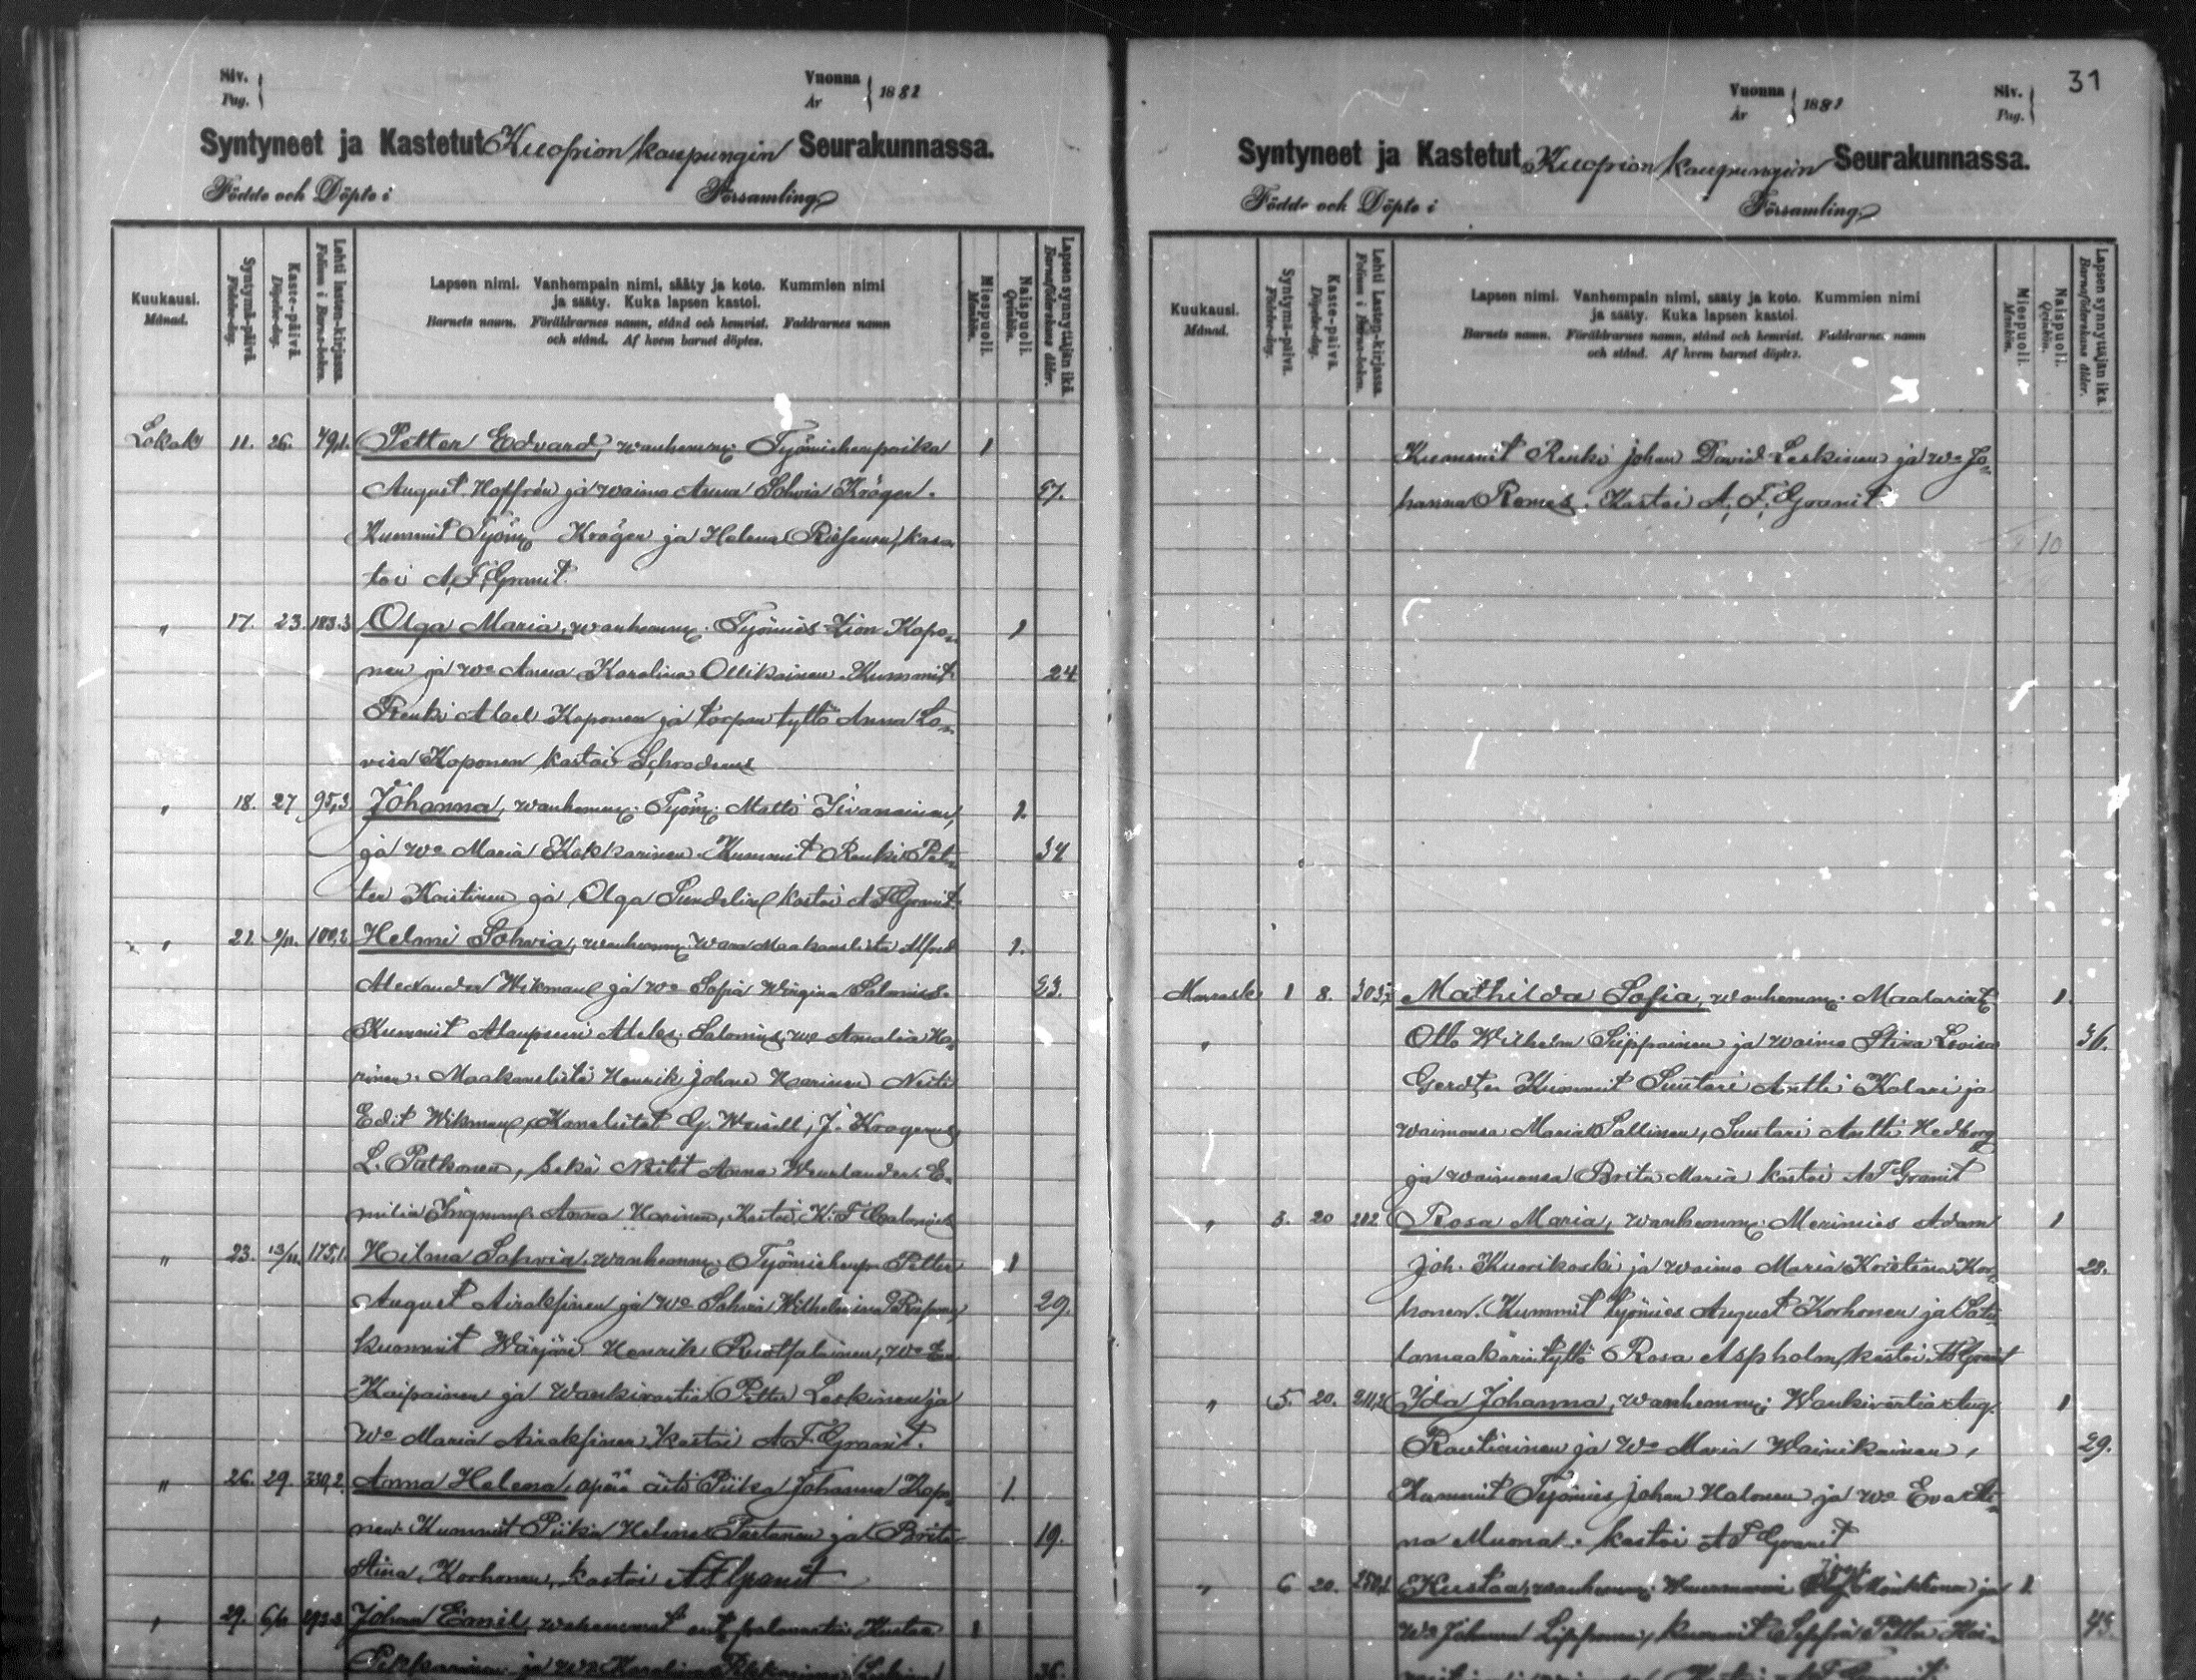 Siv. Pag.
Vuonna År 1882
Syntyneet ja Kastetut Kuopion kaupungin Seurakunnassa.
Födde och Döpte i Församling
Kuukausi. Månad.
Syntymä-päivä. Födelse-dag.
Kaste-päivä. Döpelse-dag.
Lehti lasten-kirjassa. Folium i Barna-boken.
Lapsen nimi. Vanhempain nimi, sääty ja koto. Kummien nimi
ja sääty. Kuka lapsen kastoi.
Barnets namn. Föräldrarnes namn, stånd och hemvist. Faddrarnes namn
och stånd. Af hvem barnet döptes.
Miespuoli. Mankön.
Naispuoli. Qvinkön.
Lapsen synnyttäjän ikä. Barnaföderskans ålder.
Lokak 11. 26. Petter Edvard, wanhemm: Työmiehenpoika 1
August Hoffrén ja waimo Anna Sohvia Kröger. 27.
Kummit Työm: Kröger ja Helena kas-
toi A. F. Granit.
" 17. 23. 183.3 Olga Maria, wanhemm: Työmies Kopo- 1
nen ja wo Anna Karolina Ollikainen. Kummit 24
Renki Abel Koponen ja tyttö Anna Lo-
visa Koponen kastoi
" 18. 27 95,3 Johanna, wanhemm: Työm: Matti 1.
ja wo Maria Kakkarinen. Kummit Renki Pet- 34
ter ja Olga Sundelin kastoi A F Granit.
" 21. 100,2 Helmi Sohvia, wanhemm: Maakanslista Alfred 1.
Alexander Wikman ja wo Sofia Salonius. 23.
Kummit Salonius, wo Amalia Ha-
rinen. Maakanslisti Henrik Johan Harinen Neiti
Edit Wikman, Kanslistat G. J. Krogerus
L. Putkonen, sekä Neitit Anna E-
milia Ingman Anna Harinen, Kastoi K. F.
" 23. 13/11. 175,1. Hilma Sohvia, wanhemm: Työmiehenp. Petter 1
August Airaksinen ja wo Sohvia Wilhelmina 29.
kummit Wärjäri Henrik Ruotsalainen, wo
Kaipainen ja Wankivartia Petter Leskinen ja
Wo Maria Airaksinen, kastoi A. F. Granit.
" 26. 29. 330,2. Anna Helena, äpärä äiti Piika Johanna Kopo- 1.
nen. Kummit Piika Helena Tastanen ja Brita 19.
Stina Korhonen, kastoi A F Granit
" 29. Johan Emil, Kustaa 1
ja wo Karolina 36.
31
Vuonna År 1882
Siv. Pag.
Syntyneet ja Kastetut Kuopion kaupungin Seurakunnassa.
Födde och Döpte i Församling
Kuukausi. Månad.
Syntymä-päivä. Födelse-dag.
Kaste-päivä. Döpelse-dag.
Lehti Lasten-kirjassa. Folium i Barna-boken.
Lapsen nimi. Vanhempain nimi, sääty ja koto. Kummien nimi
ja sääty. Kuka lapsen kastoi.
Barnets namn. Föräldrarnes namn, stånd och hemvist. Faddrarnes namn
och stånd. Af hvem barnet döptes.
Miespuoli. Mankön.
Naispuoli. Qvinkön.
Lapsen synnyttäjän ikä. Barnaföderskans ålder.
Kummit Renki Johan David Leskinen ja wo Jo-
hanna Romes. Kastoi A. F. Granit
10
Marrask 1 8. Mathilda Sofia, wanhemm: Maalarit 1.
" Otto Wilhelm Siippainen ja waimo Stina Lovisa 36.
Gerdter Kummit Suutari Antti Kalari ja
waimonsa Maria Sallinen, Suutari Antti Hedborg
ja waimonsa Brita Maria kastoi A F Granit
" 3. 20 Rosa Maria, wanhemm: Merimies Adam 1
Joh. Kuorikoski ja waimo Maria Kristina Kor- 28.
honen. Kummit työmies August Korhonen ja Satu-
lamaakärin tyttö Rosa Aspholm, kastoi A F Granit
" 5. 20. Ida Johanna, wanhemm: Wankivartia Aug. 1
Rautiainen ja Wo Maria Wainikainen, 29.
Kummit Työmies Johan Halonen ja wo Eva Sti-
na Muona. kastoi A F Granit
" 6 20. Kustaa, wanhemm: Mönkkönen ja 1.
wo Johanna Lipponen, kummit Seppä Petter 43.